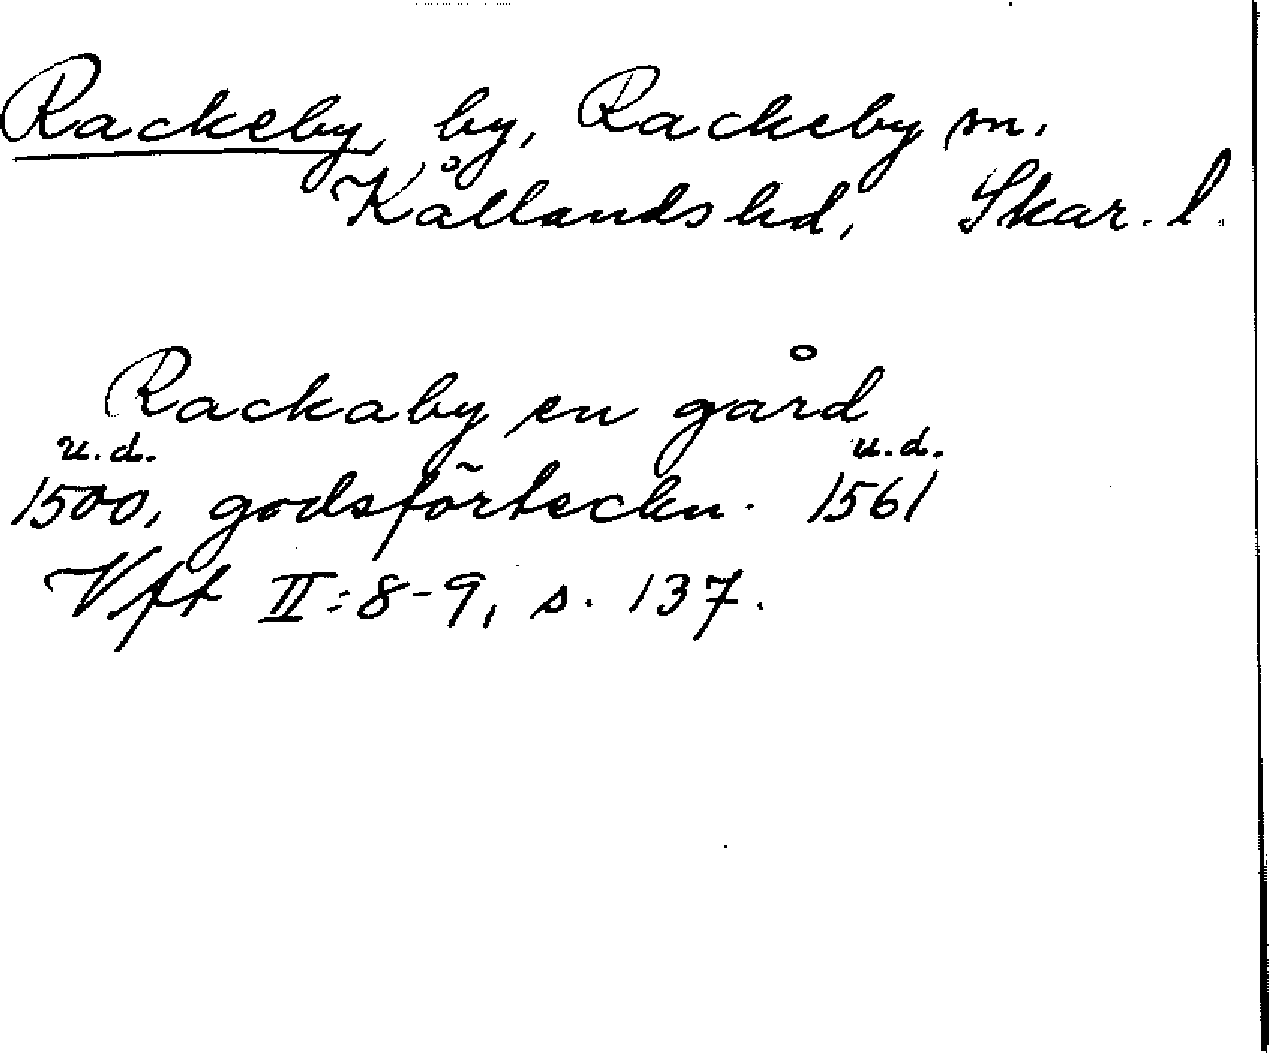 Rackeby, by, Rackeby sn.
Kållands hd, Skar. l.
Rackaby en gård
u.d. u.d.
1500, godsförteckn. 1561
Vft II:8-9, s. 137.